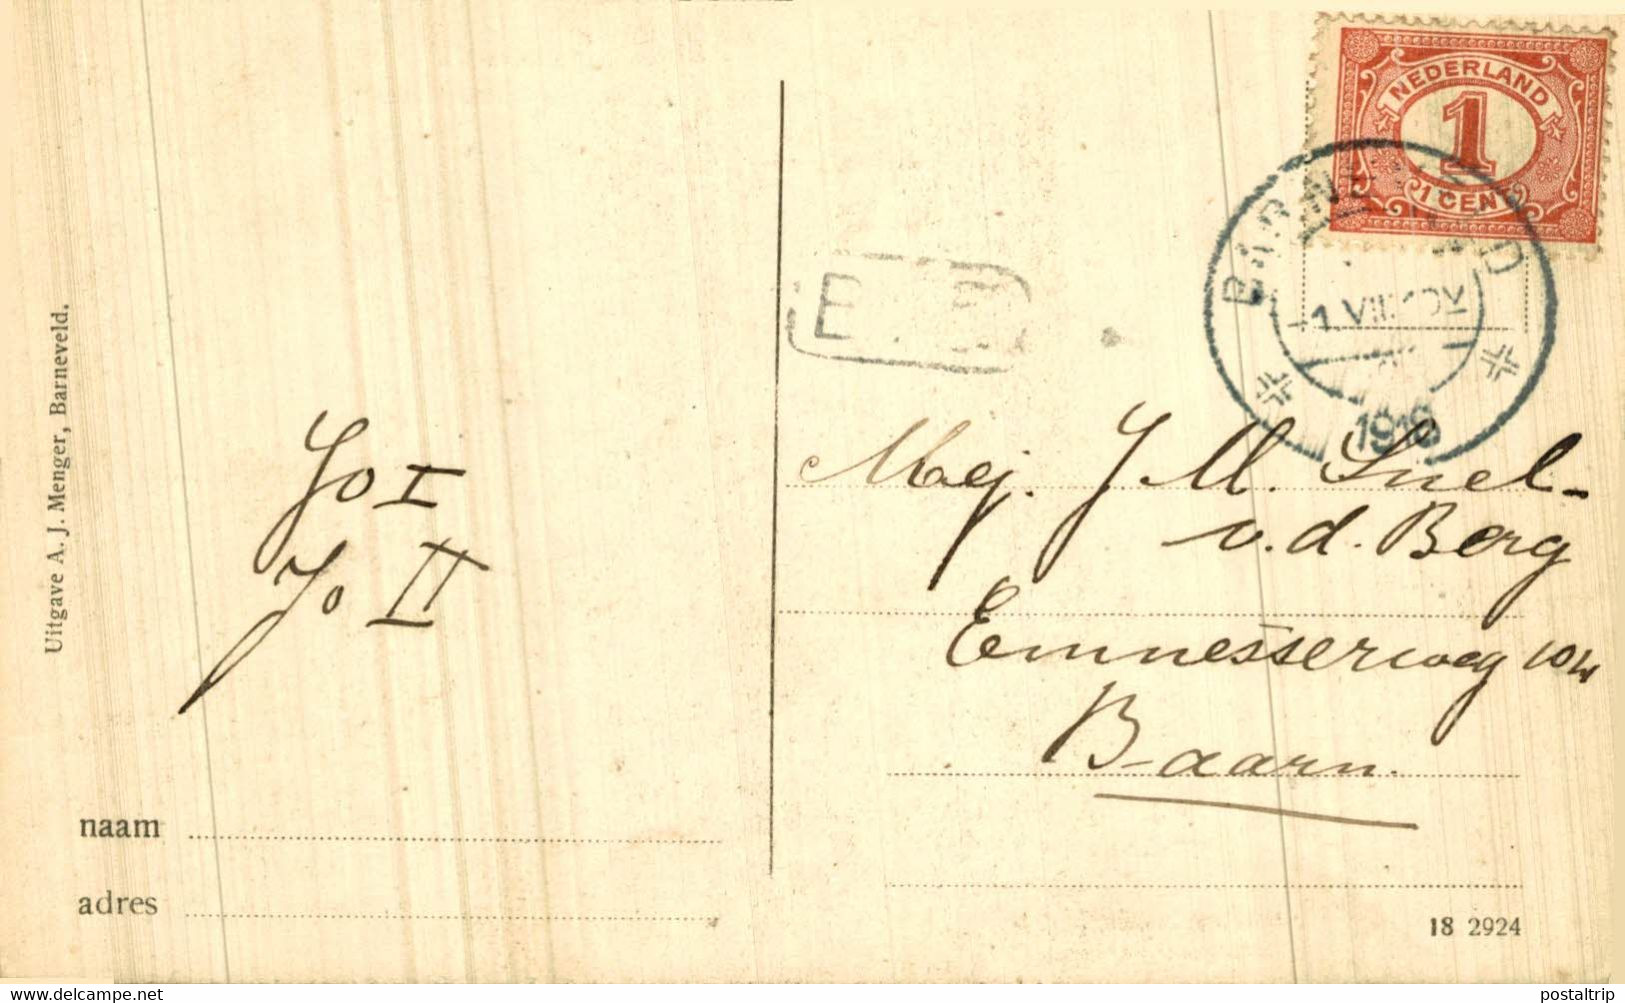 NEDERLAND
1
1 CENT
BARNEVELD
1 VII
1918
Uitgave A. J. Menger, Barneveld.
Jo I
Jo II
Mej. J M. Snel-
v.d. Berg
Emnesserweg 104
Baarn.
naam
adres
18 2924
www.delcampe.net
postaltrip